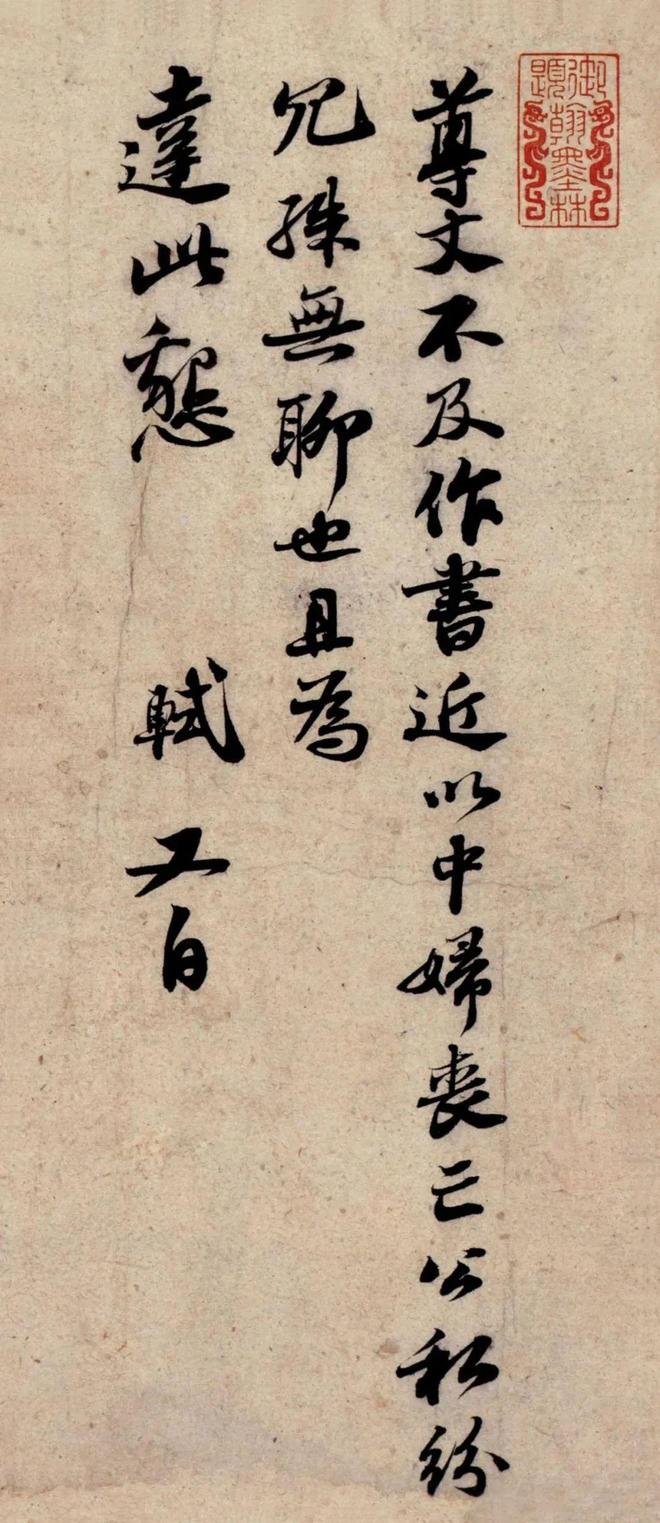 尊丈不及作書近以中婦喪亡公私紛
冗殊無聊也且為
達此懇　軾又白